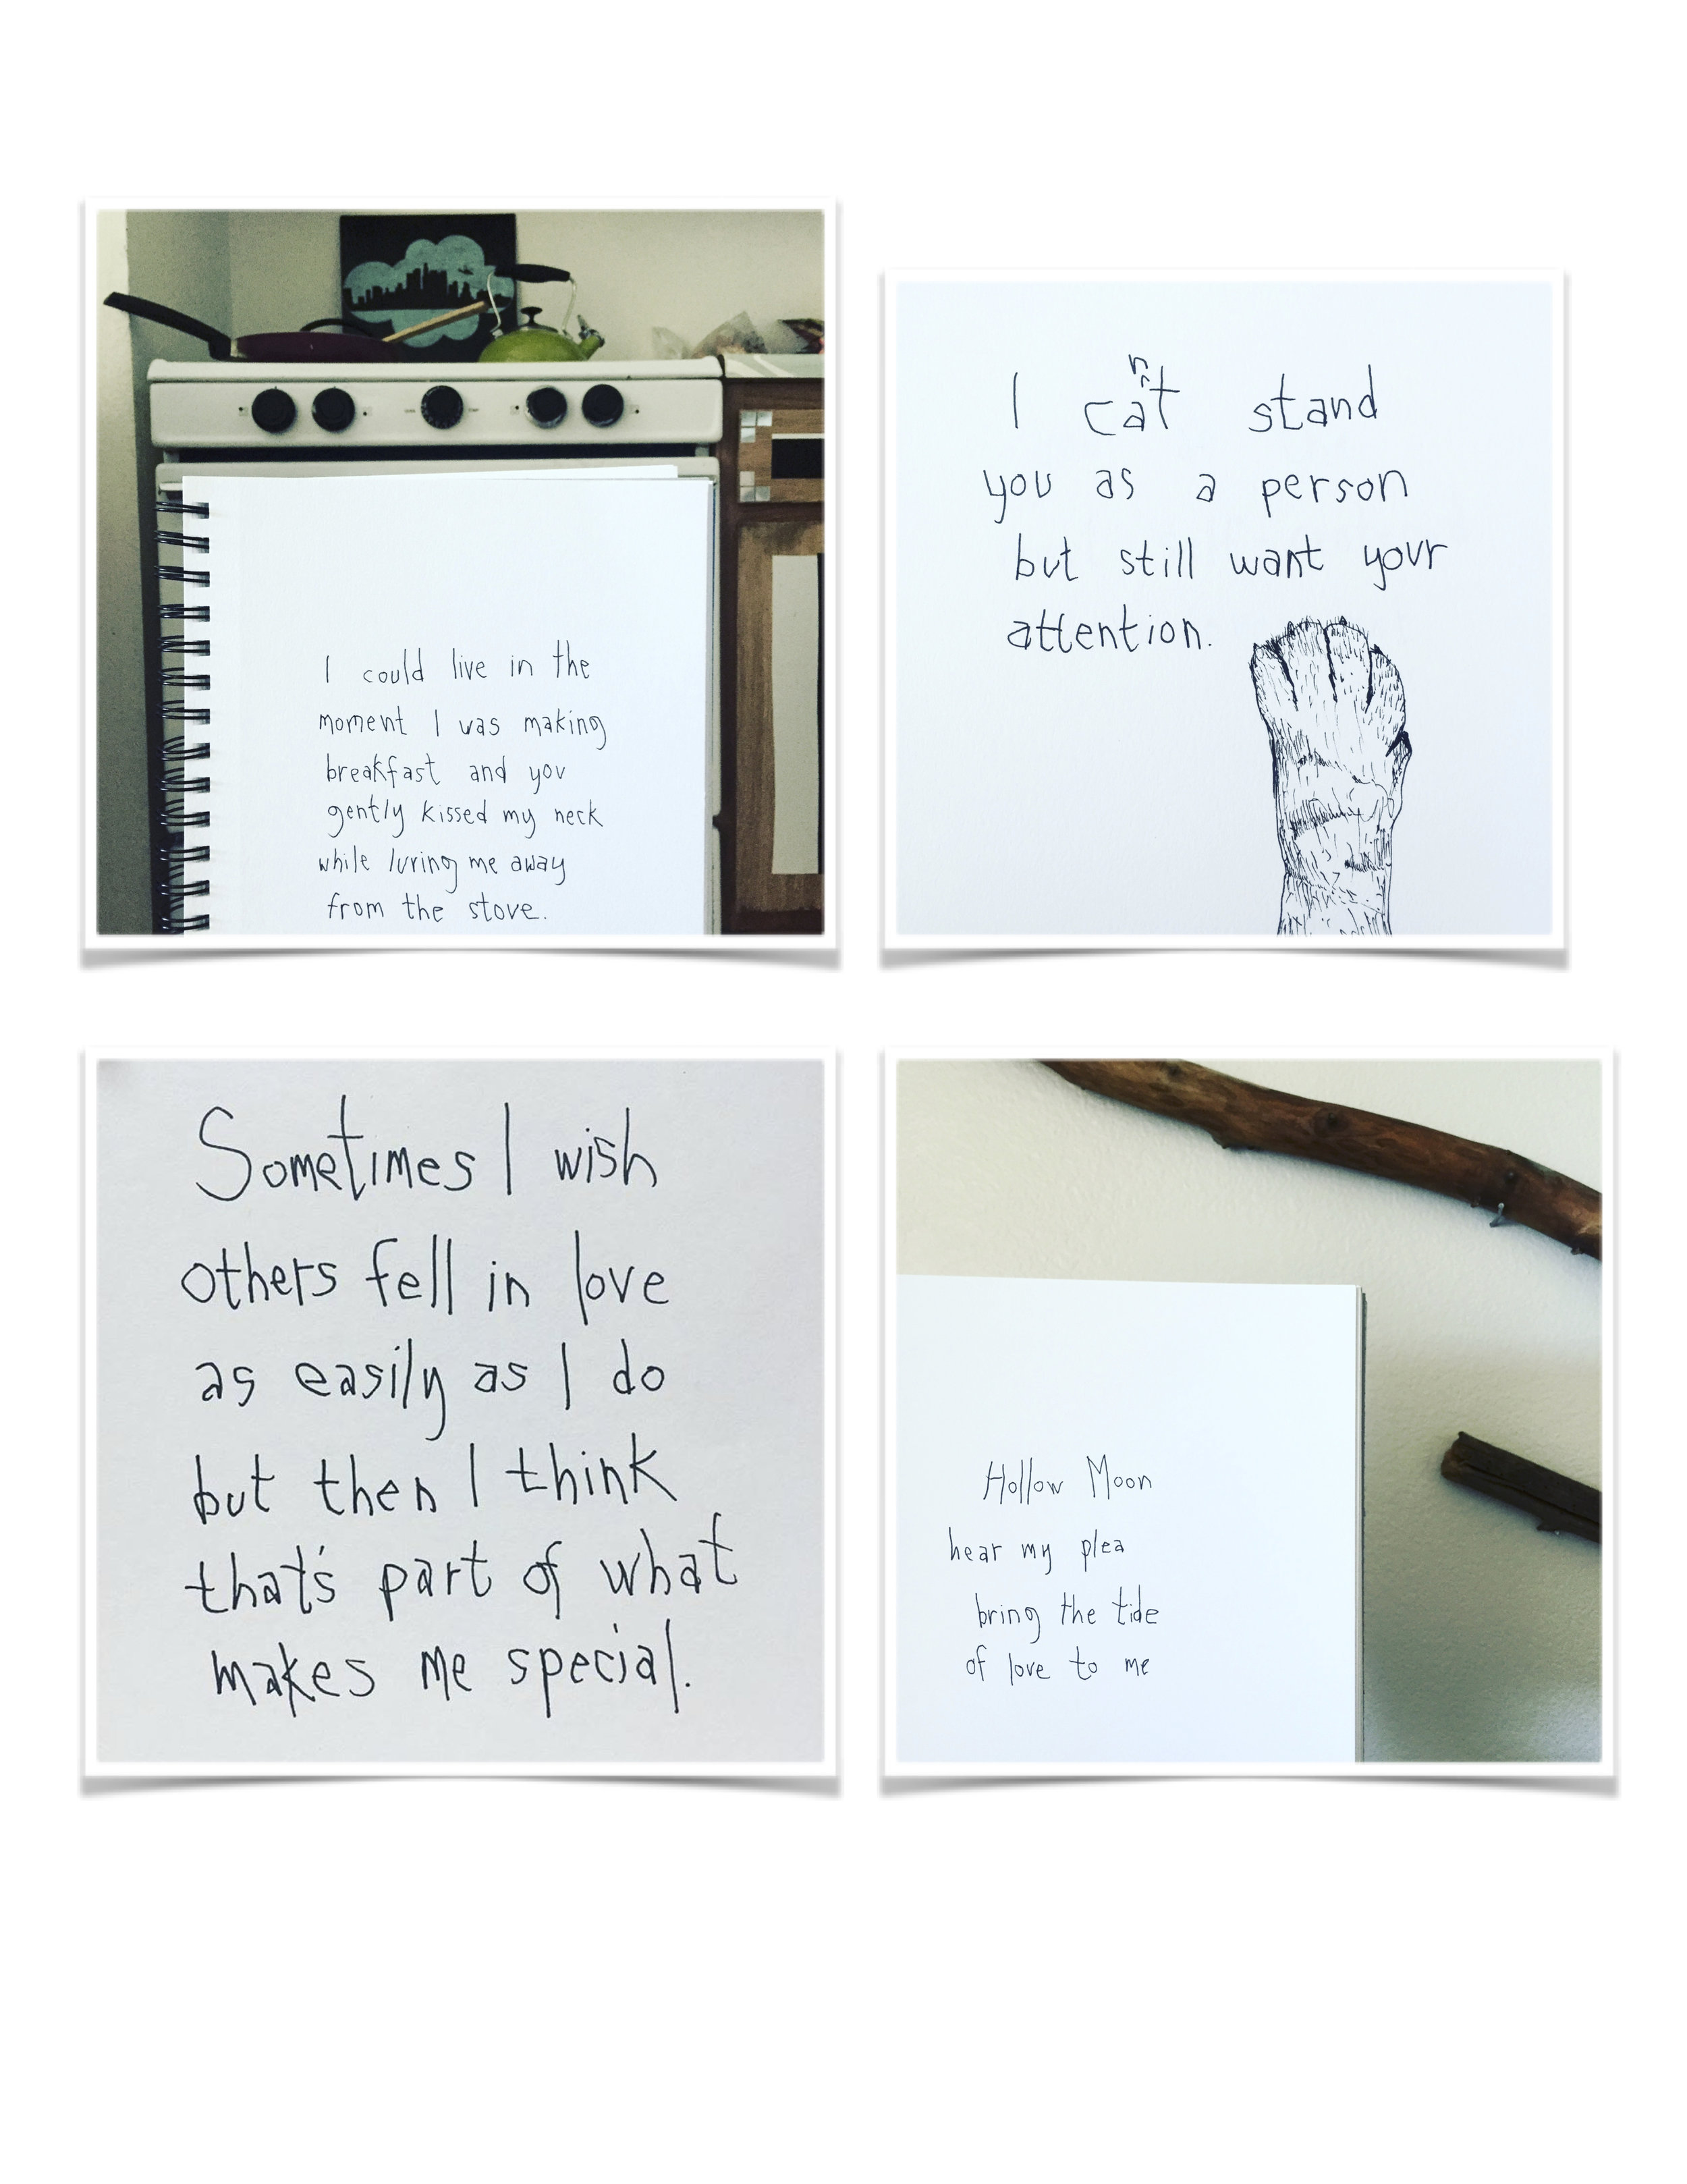 I could live in the
moment I was making
breakfast and you
gently kissed my neck
while luring me away
from the stove.
n
I cat stand
you as a person
but still want your
attention.
Sometimes I wish
others fell in love
as easily as I do
but then I think
that's part of what
makes me special.
Hollow Moon
hear my plea
bring the tide
of love to me